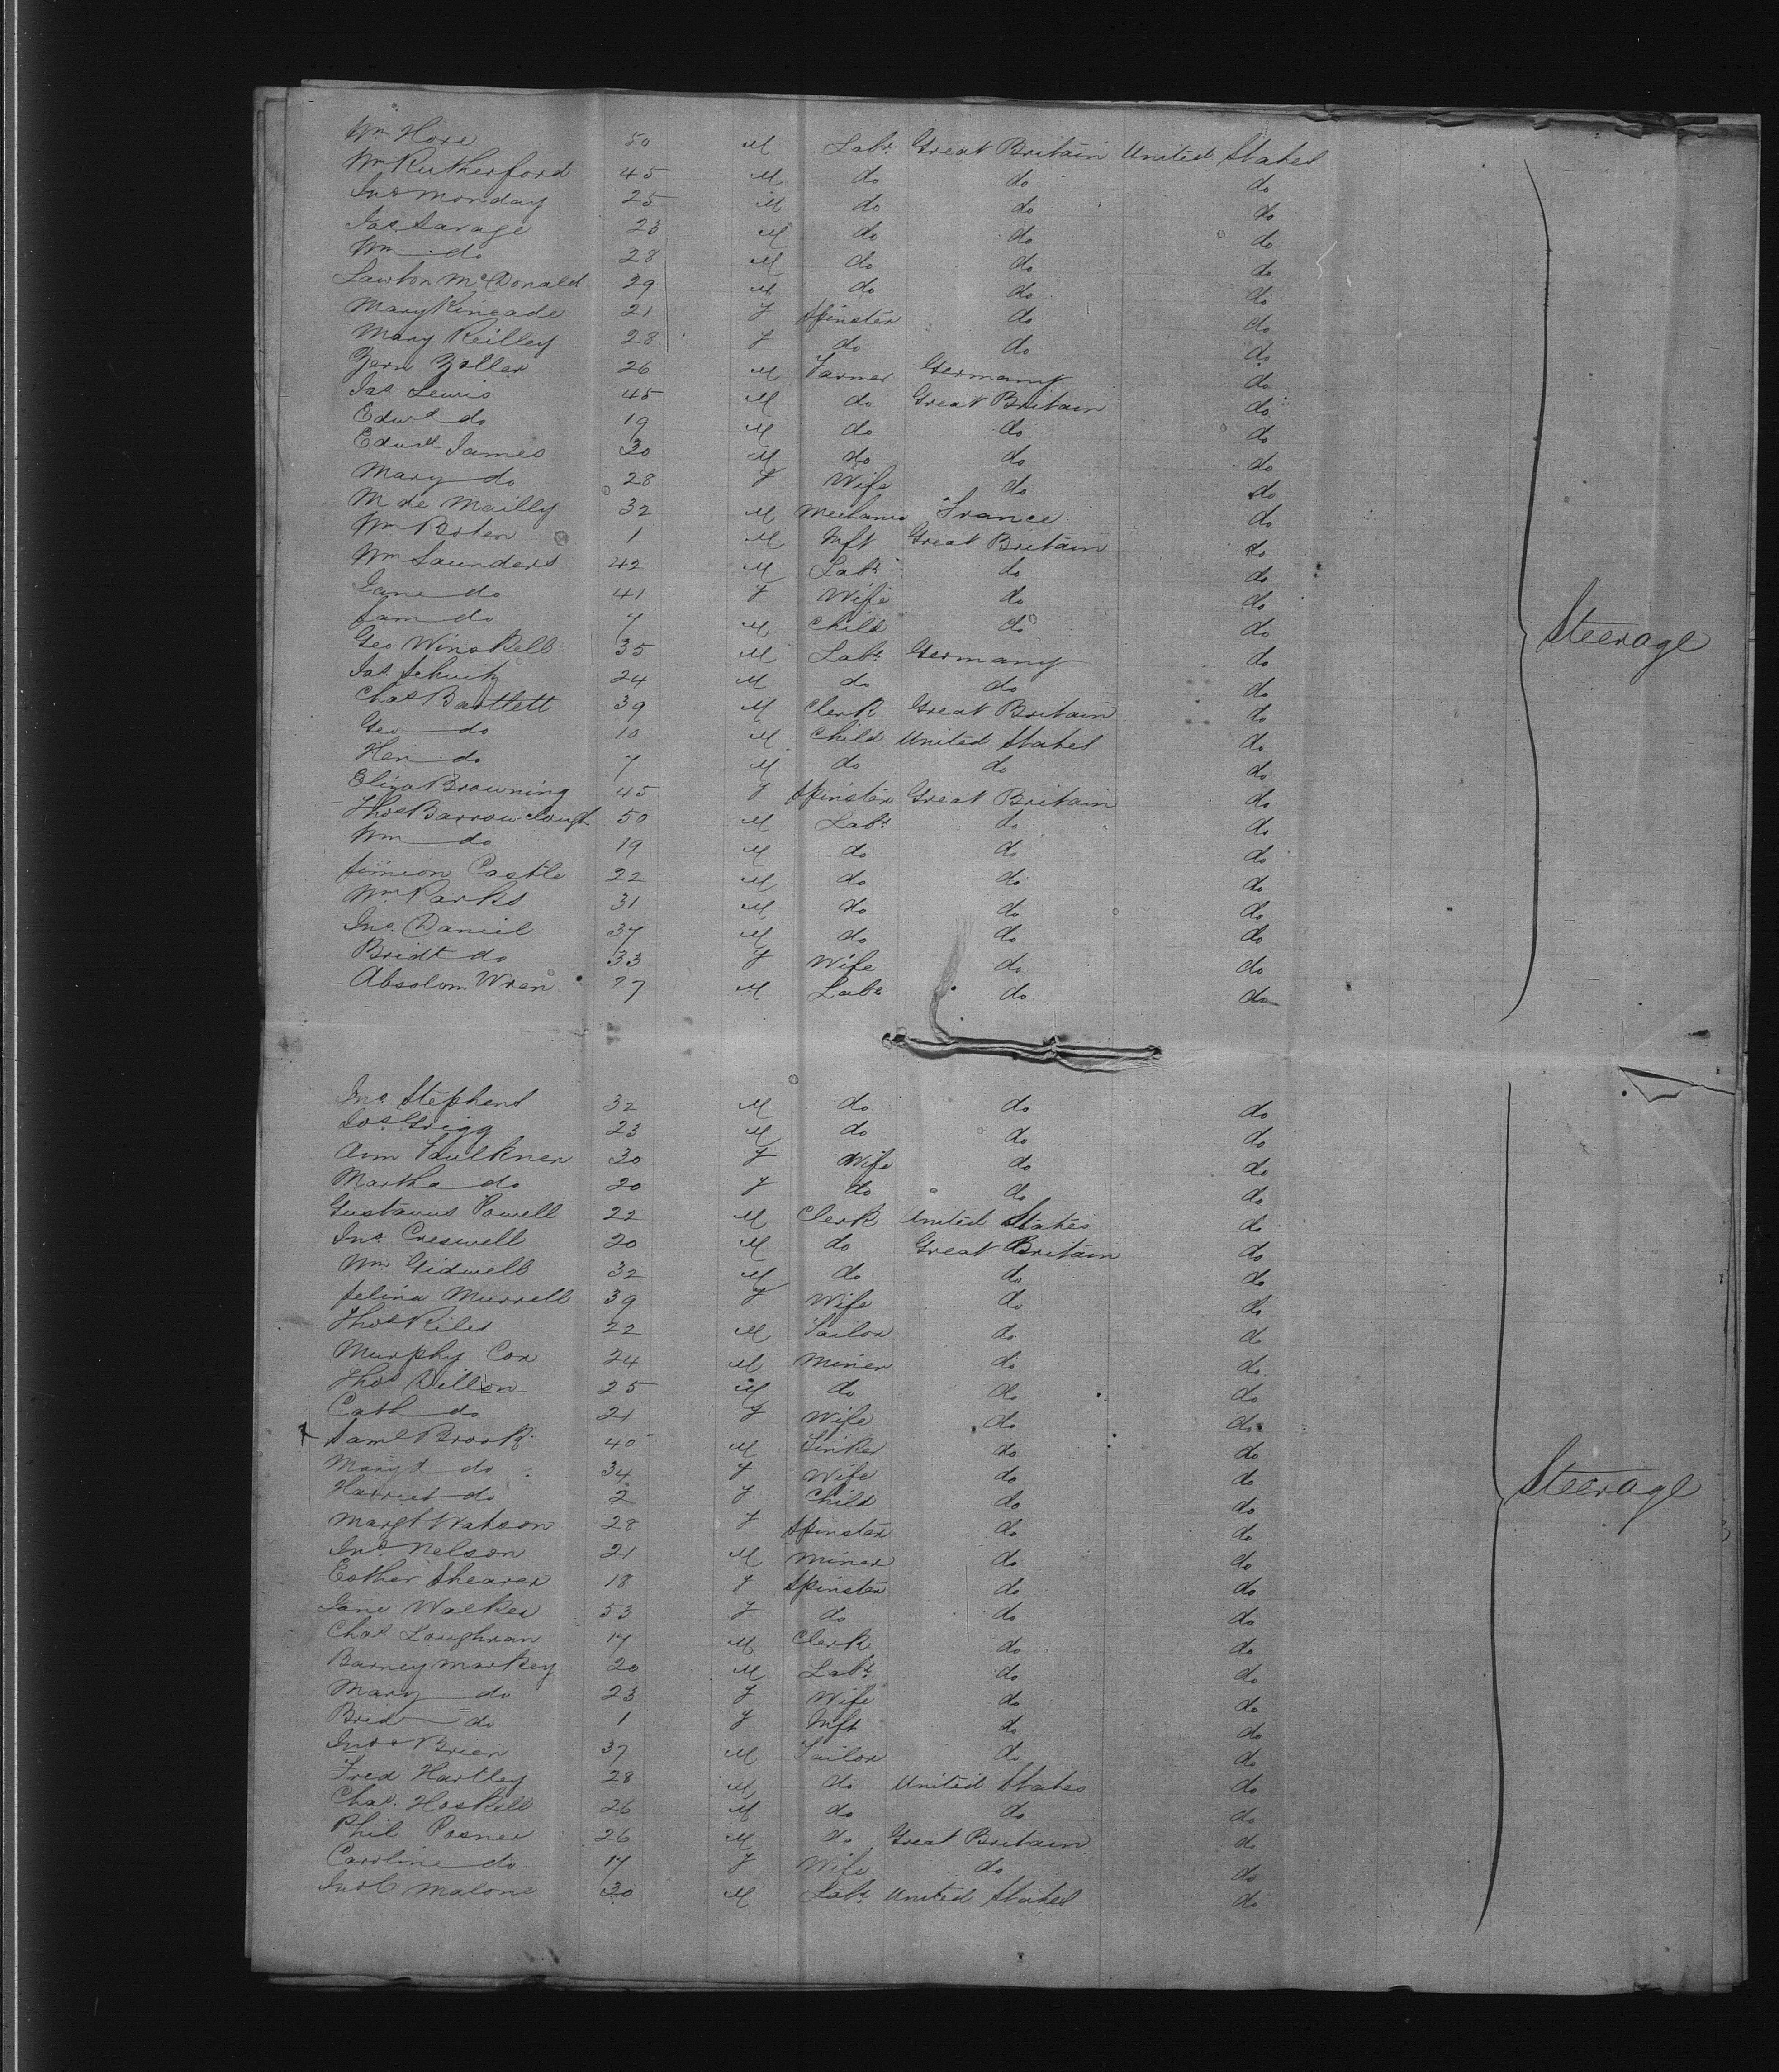 Wm Hore 50 M Labr Great Britain United States
Wm Rutherford 45 M do do do
Jno Monday 25 M do do do
Jas Savage 23 M do do do
Wm do 28 M do do do
Lawton McDonald 29 M do do do
Mary Kincade 21 F Spinster do do
Mary Reilley 28 F do do do
Zern Zoller 26 M Farmer Germany do
Jas Lewis 45 M do Great Britain do
Edwd do 19 M do do do
Edwd James 30 M do do do
Mary do 28 F Wife do do
M de Mailly 32 M Mechanic France do
Wm Boten 1 M Inft Great Britain do
Wm Saunders 42 M Labr do do
Jane do 41 F Wife do do
Sam do 7 M Child do do
Geo Winskell 35 M Labr Germany do
Jas 24 M do do do
Chas Bartlett 39 M Clerk Great Britain do
Geo do 10 M Child United States do
Hen do 7 M do do do
Eliza Browning 45 F Spinster Great Britain do
Thos Barrowclough 50 M Labr do do
Wm do 19 M do do do
Simeon Castle 22 M do do do
Wm Parks 31 M do do do
Jno Daniel 37 M do do do
Bridt do 33 F Wife do do
Absolom Wren M Labr do do
Steerage
Jno Stephens 32 M do do do
Jos Grigg 23 M do do do
Ann Faulkner 30 F Wife do do
Martha do 20 F do do do
Gustavus Powell 22 M Clerk United States do
Jno Creswell 20 M do Great Britain do
Wm Gidwell 32 M do do do
Selina Murrell 39 F Wife do do
Thos Riles 22 M Tailor do do
Murphy Cox 24 M Miner do do
Thos Dillon 25 M do do do
Cath do 21 F Wife do do
Saml Brook 40 M Sinker do do
Margt do 34 F Wife do do
Harriet do 2 F Child do do
Margt Watson 28 F Spinster do do
Jno Nelson 21 M Miner do do
Esther Shearer 18 F Spinster do do
Jane Walker 53 F do do do
Chas Loughran 17 M Clerk do do
Barney Markey 20 M Labr do do
Mary do 23 F Wife do do
Brid do 1 F Inft do do
Jno Brien 37 M Tailor do do
Fred Hartley 28 M do United States do
Chas Haskell 26 M do do do
Phil Posner 26 M do Great Britain do
Caroline do 17 F Wife do do
Jno C Malone 30 M Labr United States do
Steerage